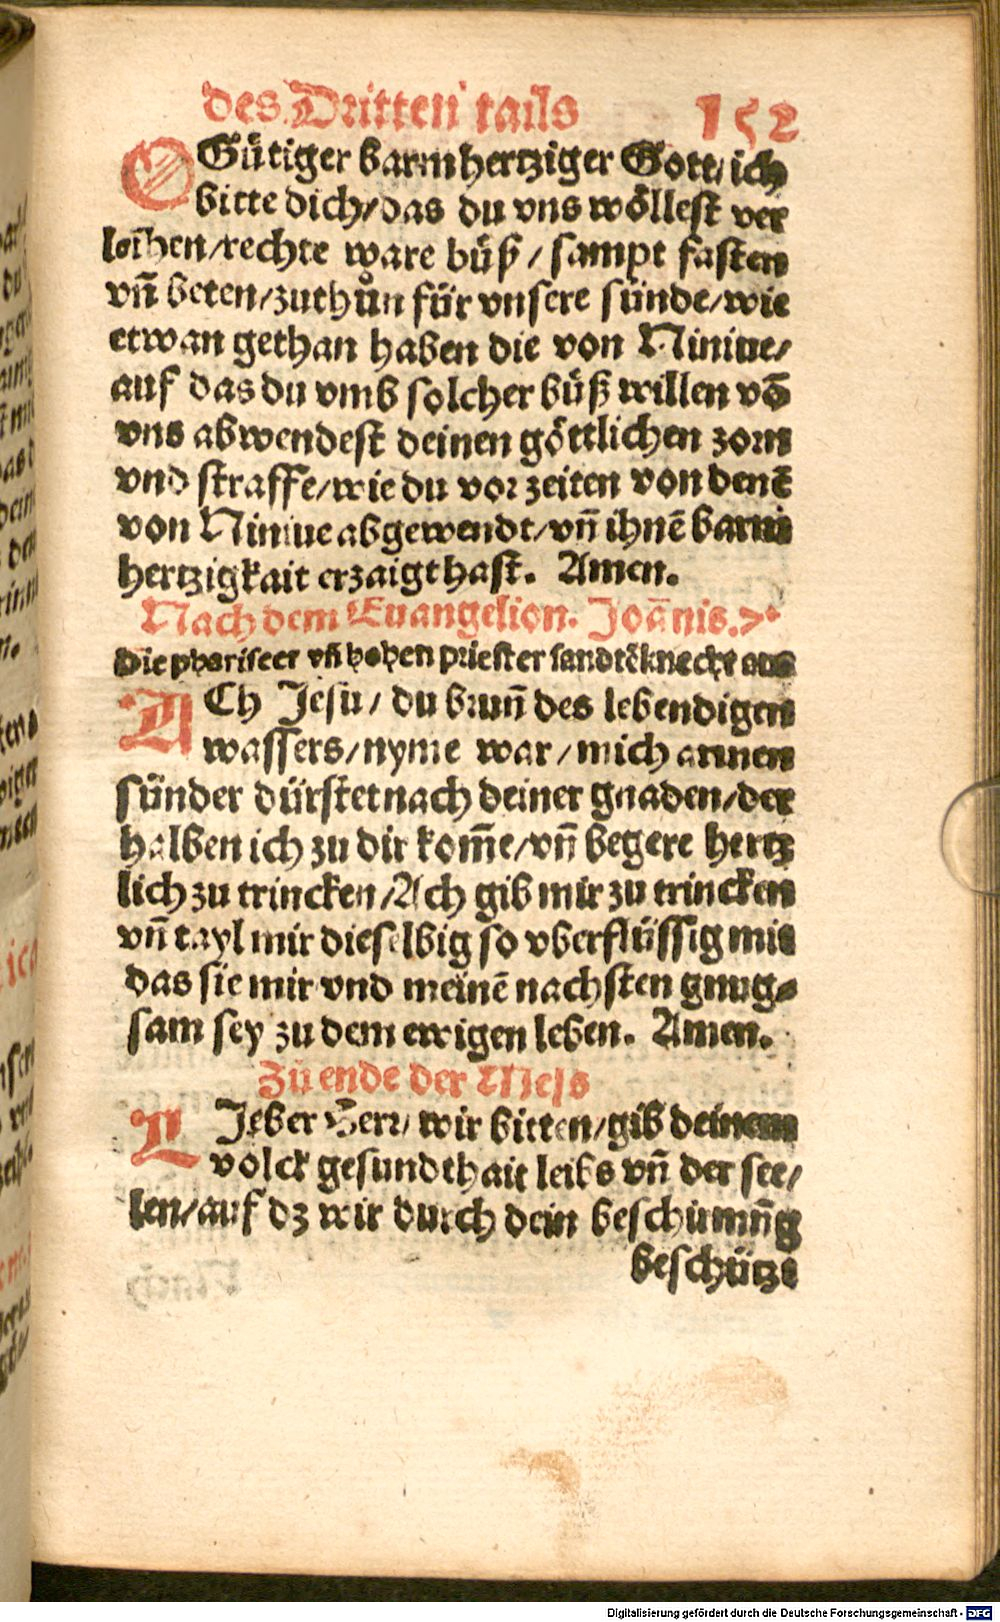 des Dritten tails 152
O Gütiger barmhertziger Gott/ ich
bitte dich/ das du vns wöllest ver
leihen/ rechte ware büß/ sampt fasten
vñ beten/ zuthůn für vnsere sünde/ wie
etwan gethan haben die von Niniue/
auf das du vmb solcher büß willen võ
vns abwendest deinen göttlichen zorn
vnd straffe/ wie du vor zeiten von denẽ
von Niniue abgewendt/ vñ ihnẽ barm
hertzigkait erzaigt hast. Amen.
Nach dem Euangelion. Joãnis.7.
Die phariseer vñ hohen priester sandtẽ knecht aus
ACh Jesu/ du brunñ des lebendigen
wassers/ nyme war/ mich armen
sünder dürstet nach deiner gnaden/ der
halben ich zu dir kom̃e/ vñ begere hertz
lich zu trincken/ Ach gib mir zu trincken
vñ tayl mir dieselbig so vberflüssig mit
das sie mir vnd meinẽ nachsten gnug-
sam sey zu dem ewigen leben. Amen.
Zu ende der Mess
LIeber Herr/ wir bitten/ gib deinem
volck gesundthait leibs vñ der see/
len/ auf dz wir durch dein beschirmũg
beschütze